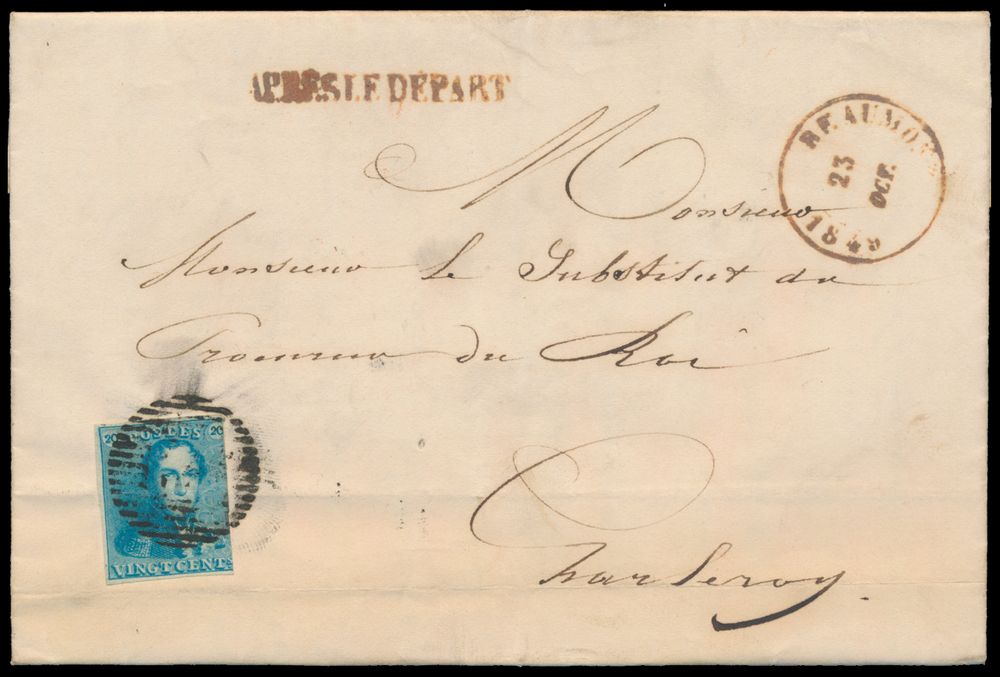 APRES LE DEPART
BEAUMONT
23
OCT.
1849
Monsieur
Monsieur le Substitut du
Procureur du Roi
Charleroy.
20 POSTES 20
VINGT CENT.